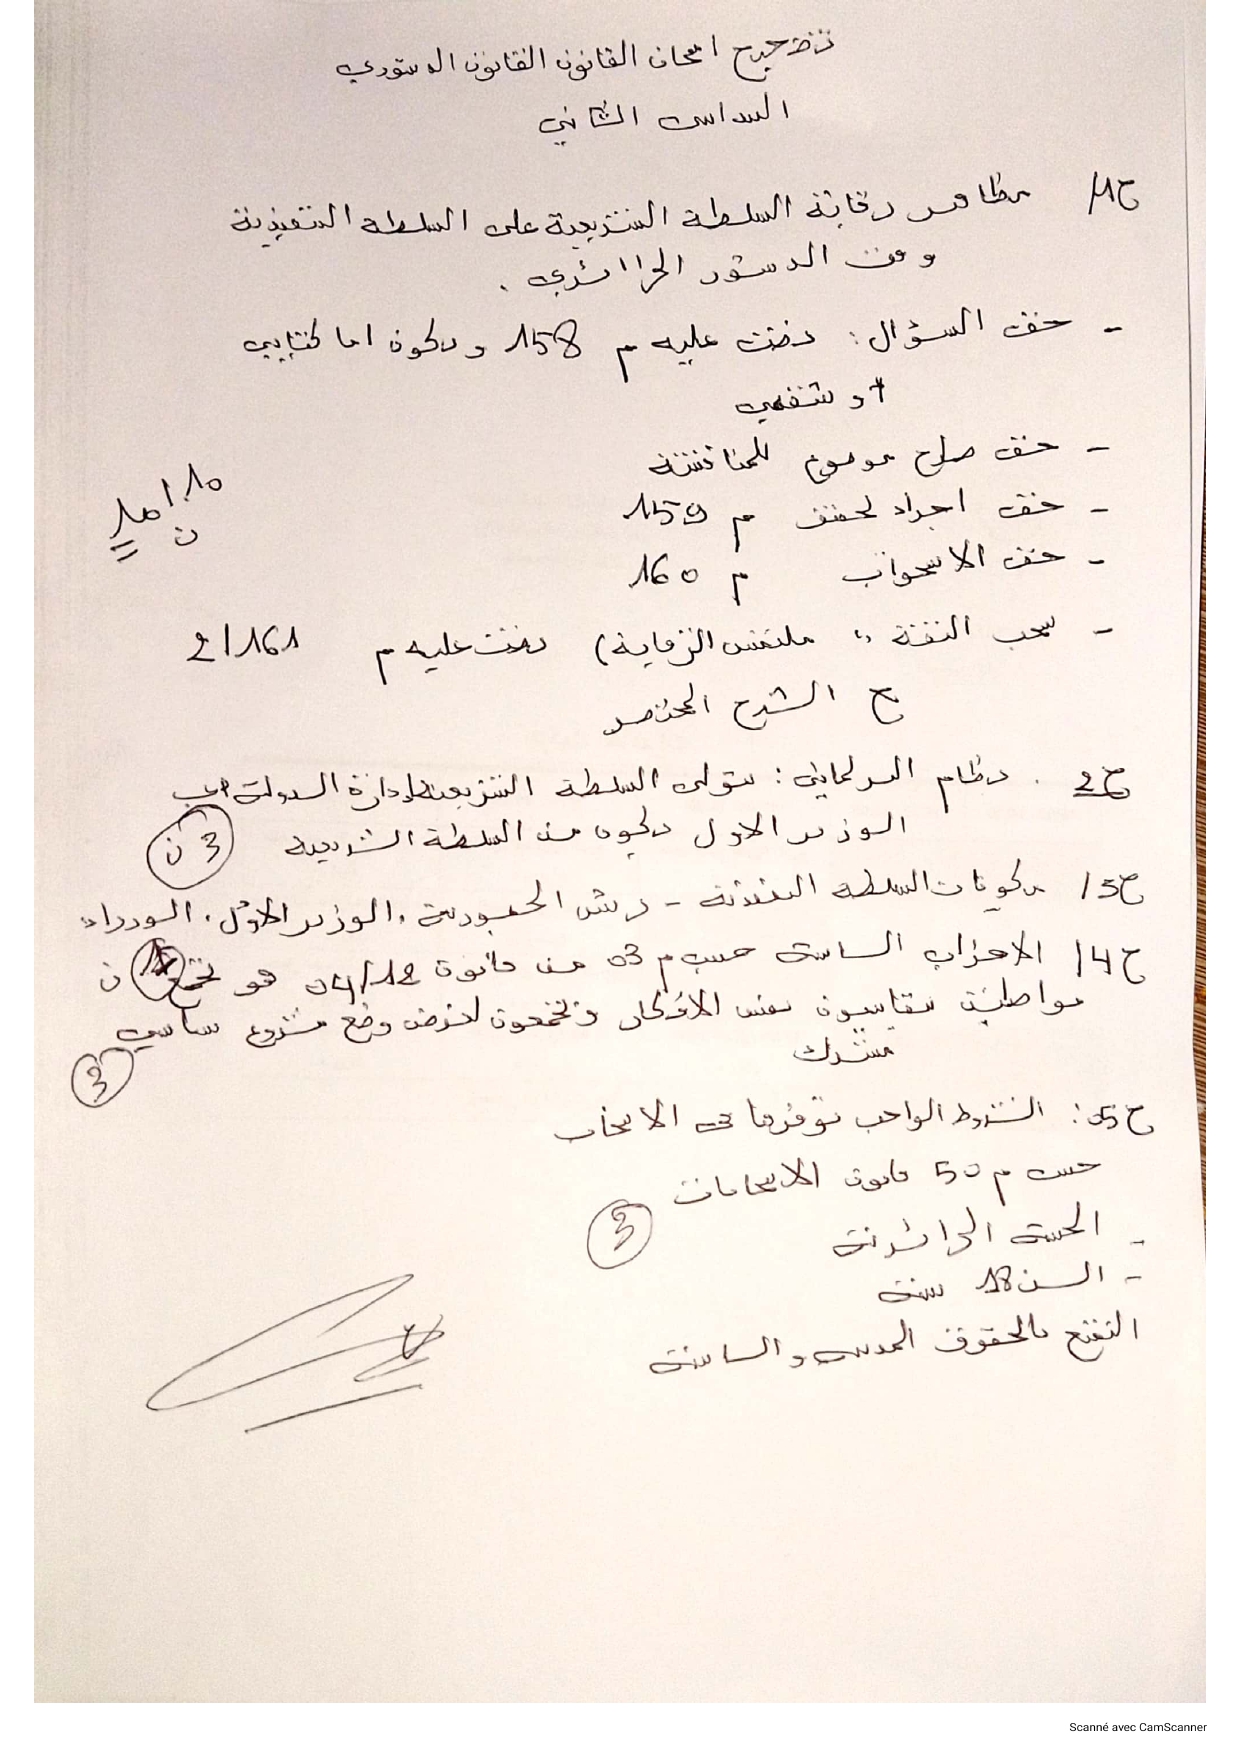 تصحيح امتحان القانون القانون الدستوري
السداسي الثاني
ج1/ مظاهر رقابة السلطة التشريعية على السلطة التنفيذية
وفق الدستور الجزائري.
- حق السؤال: نصت عليه م 158 ويكون اما كتابي
او شفهي
- حق طرح موضوع للمناقشة
- حق اجراء تحقيق م 159
- حق الاستجواب م 160
- سحب الثقة "ملتمس الرقابة) نصت عليه م 161/2
مع الشرح المختصر
ج2. نظام البرلماني: تتولى السلطة التشريعية ادارة الدولة اي
الوزير الاول يكون من السلطة التشريعية
3 ن
ج3/ مكونات السلطة التنفيذية - رئيس الجمهورية، الوزير الاول، الوزراء
ن
ج4/ الاحزاب السياسية حسب م 03 من قانون 04/12 هو تجمع
مواطنين يتقاسمون نفس الافكار ويجتمعون لغرض وضع مشروع سياسي
مشترك
3
ج05: الشروط الواجب توفرها في الانتخاب
حسب م 50 قانون الانتخابات
3
- الجنسية الجزائرية
- السن 18 سنة
التمتع بالحقوق المدنية والسياسية
Scanné avec CamScanner